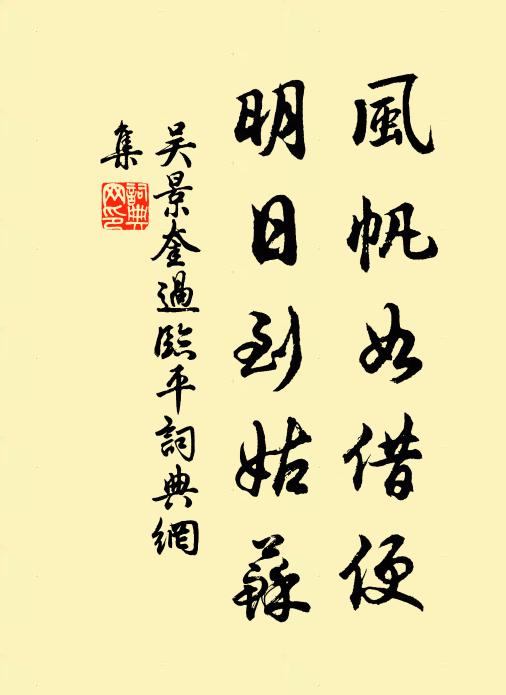 風帆如借便
明日到姑蘇
吴景奎過臨平詞典網
集
詞典網印